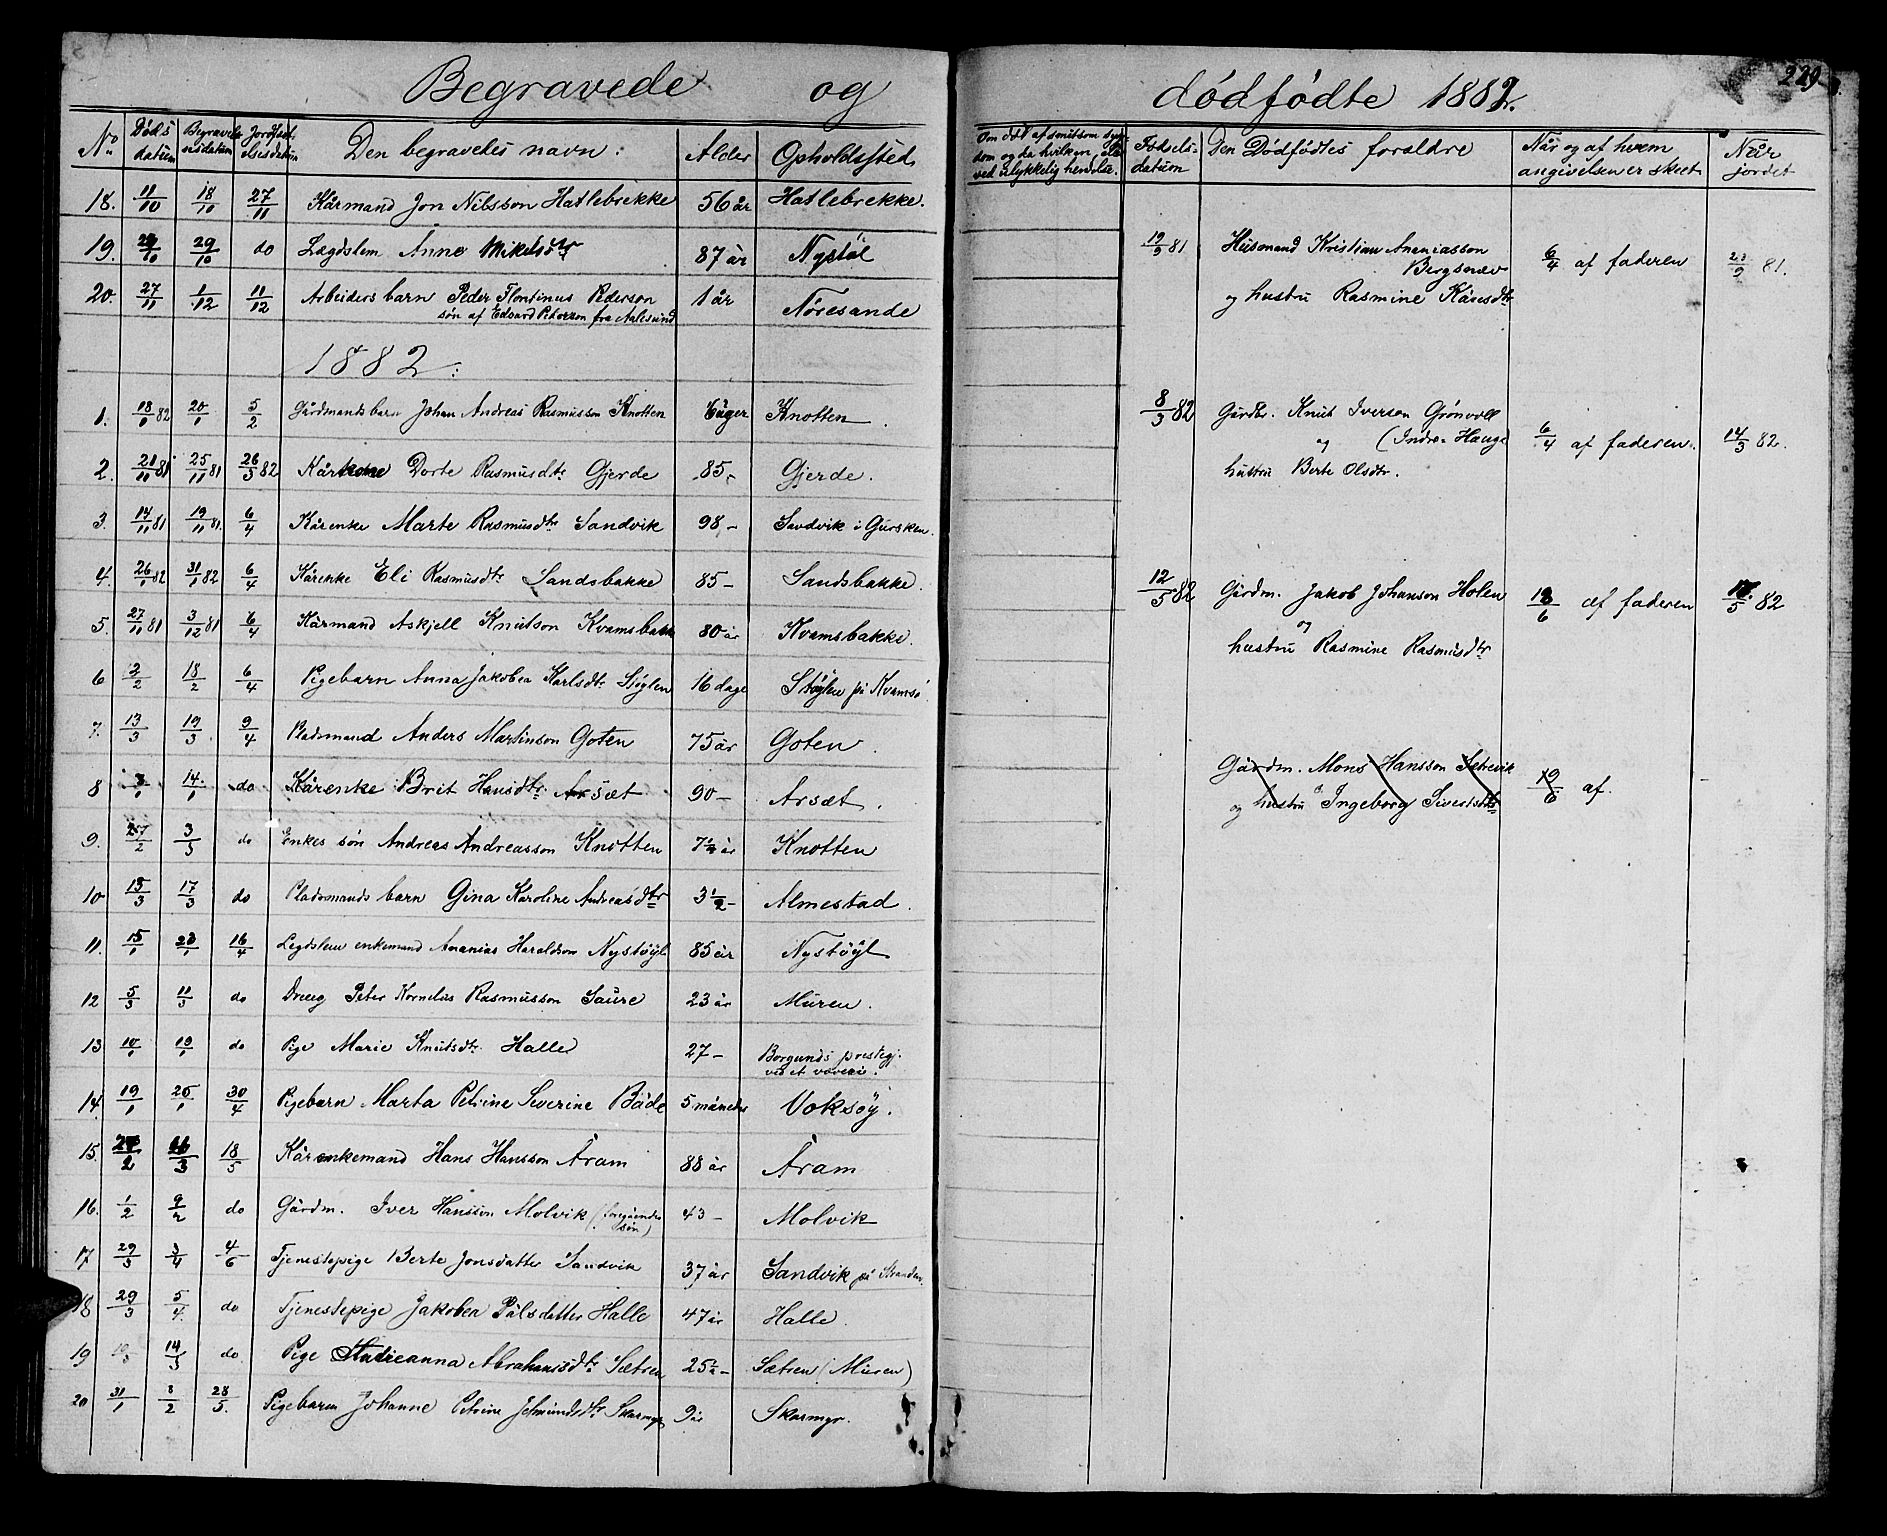 Begravede og dödfödte 1882.
229
No. Döds datum Begravelsesdatum Jordfæstelsesdatum Den begravedes navn: Alder Opholdssted
Om död af smitsom syg-
dom og da hvilken, eller
ved ulykkelig hendelse.
Födsels-
datum
Den Dödfödtes foraldre
Når og af hvem
angivelsen er skeet.
Når
jordet
18. 11/10 18/10 27/11 Kårmand Jon Nilsson Hatlebrekke 56 år Hatlebrekke.
19. 29/10 do Lægdslem Anne Mikelsdtr 87 år Nystöl
20. 27/11 1/12 11/12 Arbeiders barn Peder Flontinus Pederson 1 år Nöresande
sön af Edvard Pederson fra Aalesund
1882:
1. 18/1 82 20/1 5/2 Gårdmandsbarn Johan Andreas Rasmusson Knotten Knotten.
2. 21/11 81 25/11 81 26/3 82 Kårkone Dorte Rasmusdtr Gjerde 85- Gjerde.
3. 14/11 81 19/11 81 6/4 Kårenke Marte Rasmusdtr Sandvik 98- Sandvik i Gursken.
4. 26/1 82 31/1 82 6/4 Kårenke Eli Rasmusdtr Sandsbakke 85- Sandsbakke.
5. 27/11 81 3/12 81 6/4 Kårmand Askjell Knutson Kvamsbakk 80 år Kvamsbakke.
6 2/2 18/2 6/4 Pigebarn Anna Jakobea Karlsdtr Stöylen 16 dage Stöylen på Kvamsö
7. 13/3 19/3 9/4 Pladsmand Anders Martinson Goten 75 år Goten.
8 3/1 14/1 do Kårenke Brit Hansdtr Årsæt 90- Årsæt.
9. 27/2 3/3 do Enkes sön Andreas Andreasson Knotten 7½ år Knotten
10 13/3 17/3 do Pladsmands barn Gina Karoline Andreasdtr 3½- Almestad.
11. 15/1 23/1 16/4 Legdslem enkemand Ananias Haraldson Nystöyl 85 år Nystöyl
12 5/3 11/3 do Dreng Peter Kornelius Rasmusson Saure 23 år Muren.
13 10/1 19/1 do Pige Marie Knutsdtr Halle 27- Borgunds prestegj.
ved et væveri.
14 19/1 25/1 30/4 Pigebarn Marta Petrine Severine Både 5 måneder Voksöy.
15. 18/5 Kårenkemand Hans Hansson Åram 88 år Åram
16. 1/2 9/2 do Gårdm. Iver Hansson Molvik (foregåendes 43- Molvik
sön)
17 29/3 3/4 4/6 Tjenestepige Berte Jonsdatter Sandvik 37 år Sandvik på Stranden
18 29/3 5/4 do Tjenestepige Jakobea Pålsdatter Halle 47 år Halle.
19 14/3 do Pige Andreanna Abrahamsdtr Sætren 25½- Sætren (Muren)
20 31/1 8/2 28/5. Pigebarn Johanne Petrine Jetmundsdtr Skarmyr 9 år Skarmyr.
19/3 81 Husmand Kristian Ananiasson
Bergsnæv
og hustru Rasmine Kåresdtr
6/4 af faderen
23/3 81.
8/3 82 Gårdbr. Knut Iverson Grönvoll
og (Indre-Hauge)
hustru Berte Olsdtr.
6/4 af faderen.
14/3 82.
12/5 82 Gårdm. Jakob Johanson Holen
og
hustru Rasmine Rasmusdtr
af faderen
82
Gårdm. Mons Hansson Sætrevik
og hustru Ingeborg Sivertsdtr
19/6 af.